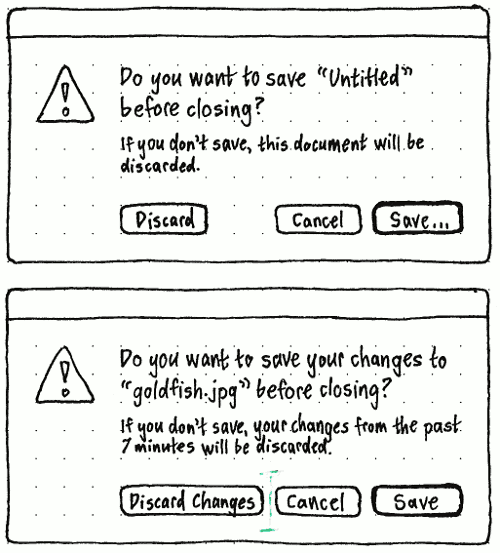 Do you want to save “Untitled”
before closing?
If you don't save, this document will be
discarded.
Discard Cancel Save...
Do you want to save your changes to
“goldfish.jpg” before closing?
If you don't save, your changes from the past
7 minutes will be discarded.
Discard Changes Cancel Save